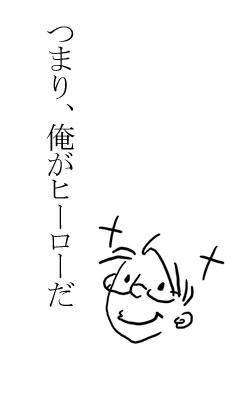 つまり、俺がヒーローだ